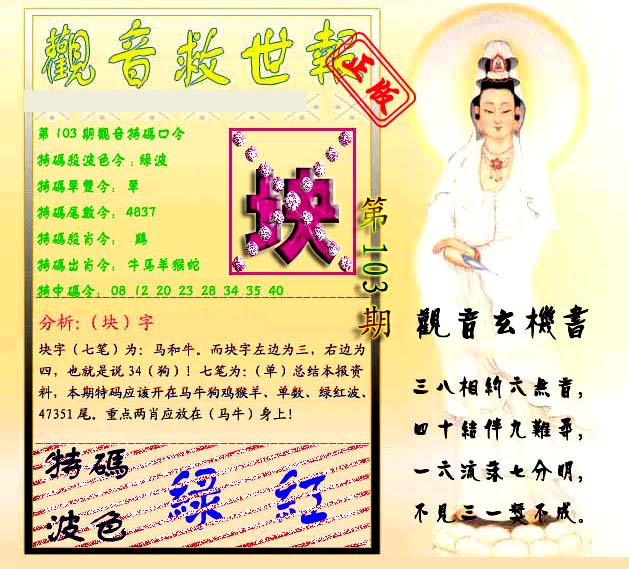 觀音救世報
正版
第103期觀音特碼口令
特碼殺波色令:綠波
特碼單雙令: 單
特碼尾數令: 4837
特碼殺肖令: 鷄
特碼出肖令: 牛馬羊猴蛇
特中碼令: 08 12 20 23 28 34 35 40
块
第103期
分析:（块）字
块字（七笔）为：马和牛。而块字左边为三，右边为
四，也就是说34（狗）！七笔为：（单）总结本报资
料，本期特码应该开在马牛狗鸡猴羊、单数、绿红波、
47351尾。重点两肖应放在（马牛）身上！
特碼
波色
綠 紅
觀音玄機書
三八相約六無音，
四十結伴九難尋，
一六流落七分明，
不見三一獎不成。